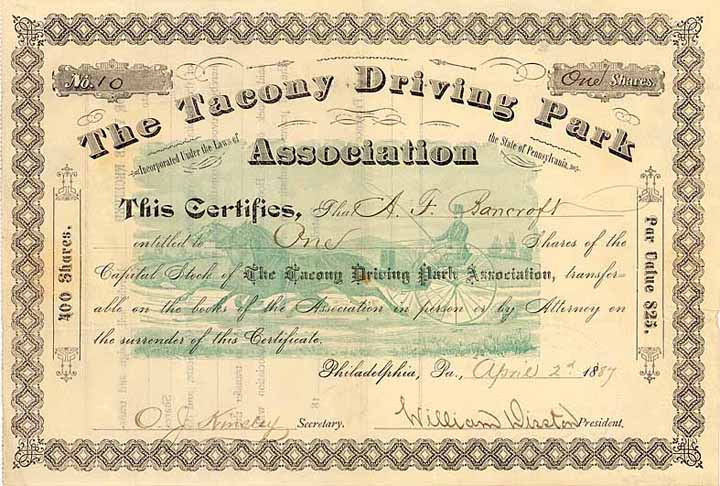 No. 10
One Shares
The Tacony Driving Park
Incorporated Under the Laws of
the State of Pennsylvania.
Association
400 Shares.
Par Value $25.
This Certifies, That A. F. Bancroft
entitled to One Shares of the
Capital Stock of The Tacony Driving Park Association, transfer-
able on the books of the Association in person or by Attorney on
the surrender of this Certificate.
Philadelphia, Pa., April 2nd 1887
O. J. Secretary.
William Disston President.